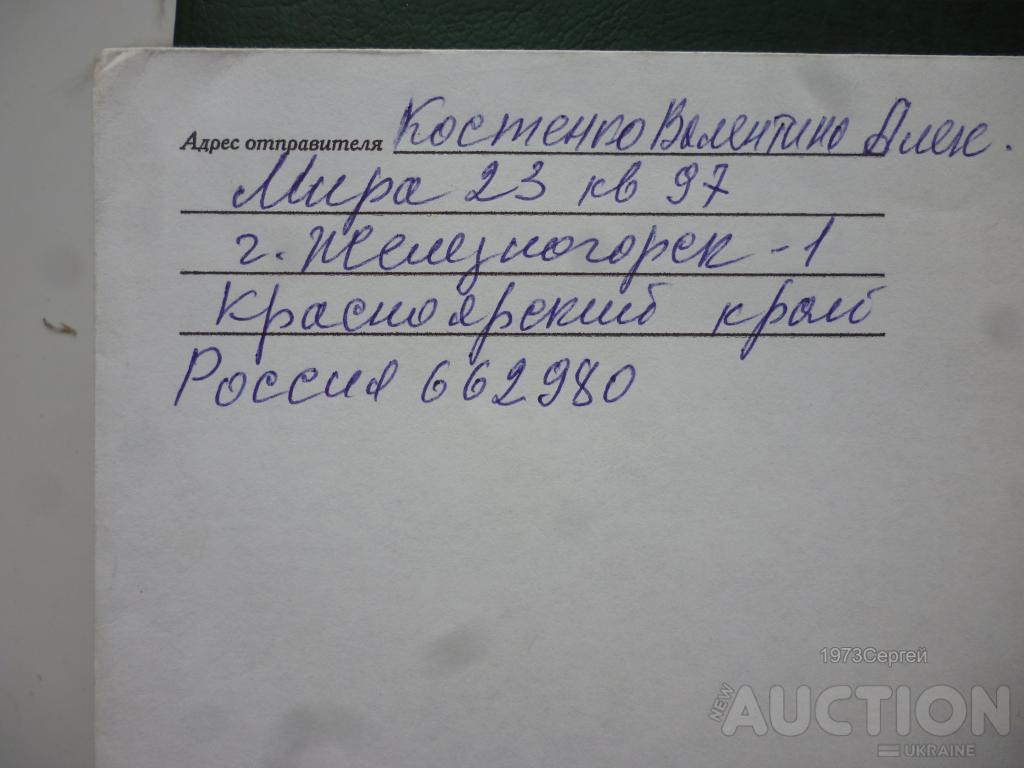 Адрес отправителя Костенко Валентина Алек.
Мира 23 кв 97
г. Железногорск - 1
Красноярский край
Россия 662980
1973Сергей
NEW AUCTION
UKRAINE